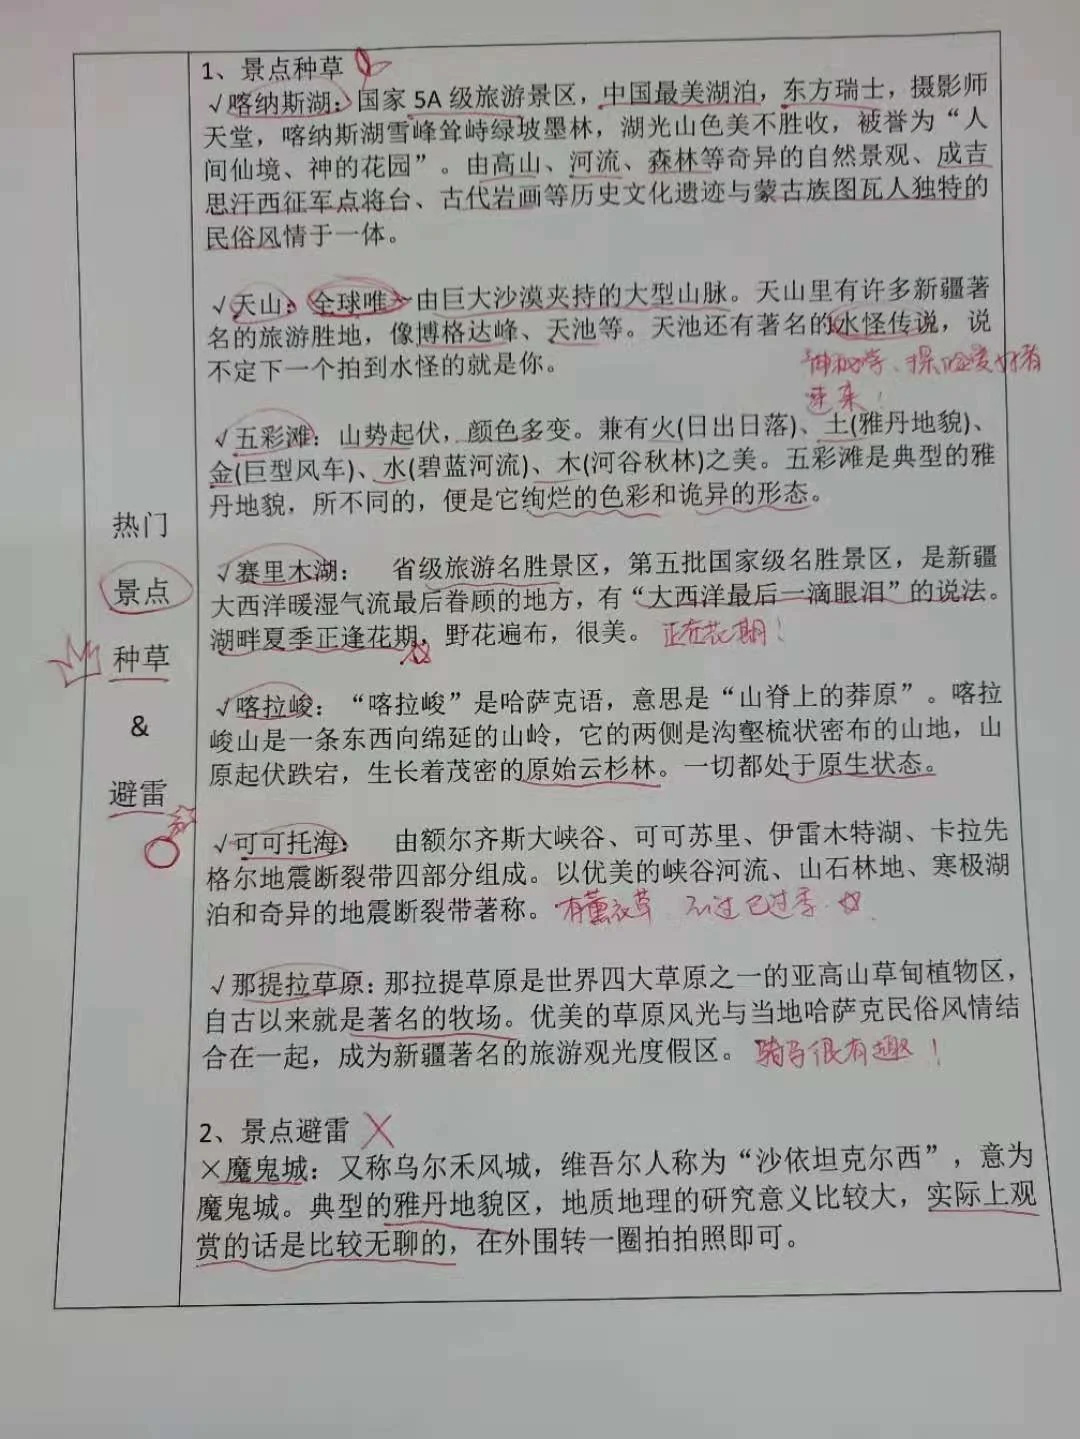 热门
景点
种草
&
避雷
1、景点种草
√喀纳斯湖：国家 5A 级旅游景区，中国最美湖泊，东方瑞士，摄影师
天堂，喀纳斯湖雪峰耸峙绿坡墨林，湖光山色美不胜收，被誉为“人
间仙境、神的花园”。由高山、河流、森林等奇异的自然景观、成吉
思汗西征军点将台、古代岩画等历史文化遗迹与蒙古族图瓦人独特的
民俗风情于一体。
√天山：全球唯一由巨大沙漠夹持的大型山脉。天山里有许多新疆著
名的旅游胜地，像博格达峰、天池等。天池还有著名的水怪传说，说
不定下一个拍到水怪的就是你。
神秘学、探险爱好者
速来！
√五彩滩：山势起伏，颜色多变。兼有火(日出日落)、土(雅丹地貌)、
金(巨型风车)、水(碧蓝河流)、木(河谷秋林)之美。五彩滩是典型的雅
丹地貌，所不同的，便是它绚烂的色彩和诡异的形态。
√赛里木湖： 省级旅游名胜景区，第五批国家级名胜景区，是新疆
大西洋暖湿气流最后眷顾的地方，有“大西洋最后一滴眼泪”的说法。
湖畔夏季正逢花期，野花遍布，很美。 正在花期！
√喀拉峻：“喀拉峻”是哈萨克语，意思是“山脊上的莽原”。喀拉
峻山是一条东西向绵延的山岭，它的两侧是沟壑梳状密布的山地，山
原起伏跌宕，生长着茂密的原始云杉林。一切都处于原生状态。
√可可托海： 由额尔齐斯大峡谷、可可苏里、伊雷木特湖、卡拉先
格尔地震断裂带四部分组成。以优美的峡谷河流、山石林地、寒极湖
泊和奇异的地震断裂带著称。 有薰衣草 不过已过季
√那提拉草原：那拉提草原是世界四大草原之一的亚高山草甸植物区，
自古以来就是著名的牧场。优美的草原风光与当地哈萨克民俗风情结
合在一起，成为新疆著名的旅游观光度假区。 骑马很有趣！
2、景点避雷
×魔鬼城：又称乌尔禾风城，维吾尔人称为“沙依坦克尔西”，意为
魔鬼城。典型的雅丹地貌区，地质地理的研究意义比较大，实际上观
赏的话是比较无聊的，在外围转一圈拍拍照即可。